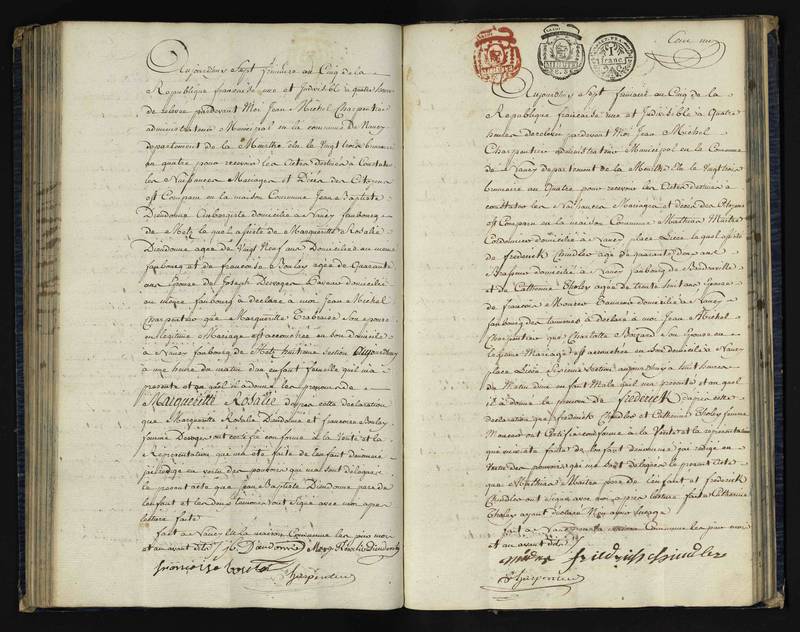 Aujourdhuy Sept frimaire au Cinq de la
Republique francaise une et Indivisible a quatre heures
de relevee pardevant Moi Jean Michel Charpentier
administrateur Municipal en la commune de Nancy
departement de la Meurthe Elu le Vingt trois brumaire
an quatre pour recevoir les Actes destinés à Constater
les Naissances Mariages et Décès des Citoyens
est Comparu en la maison Commune Jean Baptiste
Dieudonné domicilié à Nancy faubourg
de Metz le quel assisté de Marguerite Rosalie
Dieudonné agée de Vingt Neuf ans Domiciliée au meme
faubourg et de francoise Boulay agée de Quarante
ans Epouse de Joseph Desroges domicilié
au meme faubourg a déclaré a moi Jean Michel
Charpentier que Marguerite Son epouse
en légitime Mariage est accouchée en son domicile
à Nancy faubourg de Metz huitieme section aujourdhuy
à une heure du matin d'un enfant femelle quil m'a
presenté et au quel il a donné les prenoms de
Margueritte Rosalie d'après cette déclaration
que Marguerite Rosalie Dieudonné et francoise Boulay
femme Desroges ont certifié conforme à la Vérité et la
Représentation qui m'a été faite de l'enfant dénommé
j'ai rédigé en vertu des pouvoirs qui me sont délégués
le present acte que Jean Baptiste Dieudonné pere de
l'enfant et les deux temoins ont Signé avec moi après
lecture faite
fait à Nancy en la maison Commune les jour mois
et an avant dits Jb. Dieudonné Marg. Rosalie Dieudonné
françoise boulet
Charpentier
1
franc
Aujourdhuy Sept frimaire au Cinq de la
Republique francaise une et Indivisible a Quatre
heures De relevee pardevant Moi Jean Michel
Charpentier administrateur Municipal en la Commune
de Nancy departement de la Meurthe Elu le Vingt trois
brumaire au Quatre pour recevoir les Actes destinés a
constater les Naissances Mariages et décès des Citoyens
est Comparu en la maison Commune Mathias Maitre
Cordonnier domicilié à Nancy place le quel assisté
de frederick Chindler agé de quarante deux ans
Brasseur domicilié à Nancy faubourg de
et de Catherine Choley agée de trente huit ans Epouse
de francois domicilié à Nancy
faubourg des tanneries a Déclaré a moi Jean Michel
Charpentier que Charlotte Son Epouse en
légitime Mariage est accouchée en Son domicile à Nancy
place section aujourdhuy à huit heures
du Matin d'un enfant Male quil m'a presenté et au quel
il a donné le prenom de frederick d'après cette
déclaration que frederick Chindler et Catherine Choley femme
ont Certifié conforme à la Vérité et la representation
qui m'a été faite de l'enfant dénommé j'ai rédigé en
Vertu des pouvoirs qui me sont délégués le present acte
que Mathias Maitre pere de l'enfant et frederick
Chindler ont Signé avec moi apres lecture faite Catherine
Choley ayant déclaré
fait à Nancy en la maison Commune les jour mois
et an avant dits
friedrich schindler
Charpentier